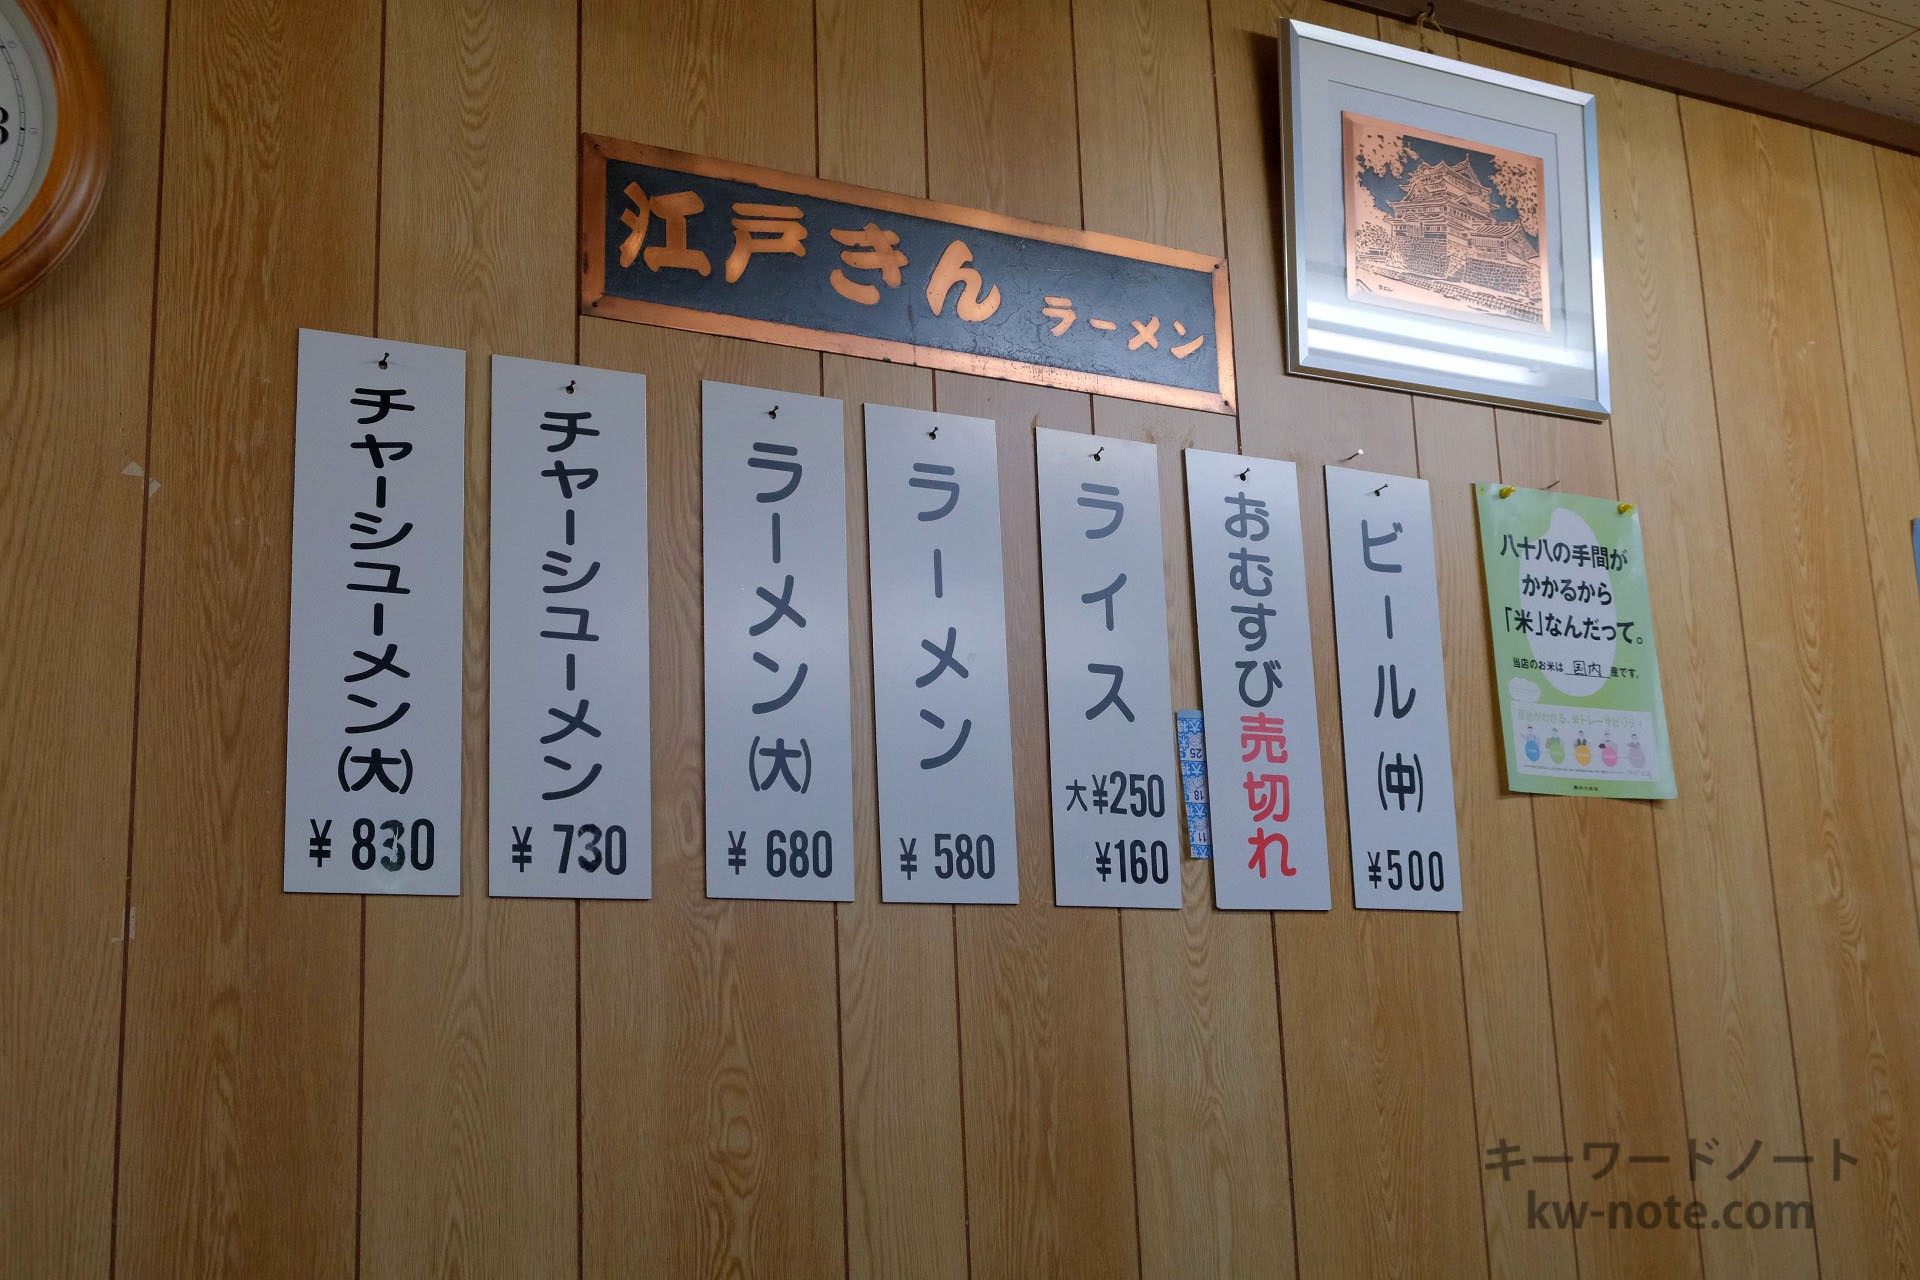 江戸きん ラーメン
チャーシューメン(大)
¥830
チャーシューメン
¥730
ラーメン(大)
¥680
ラーメン
¥580
ライス
大¥250
¥160
おむすび売切れ
ビール(中)
¥500
八十八の手間が
かかるから
「米」なんだって。
当店のお米は 国内 産です。
キーワードノート
kw-note.com